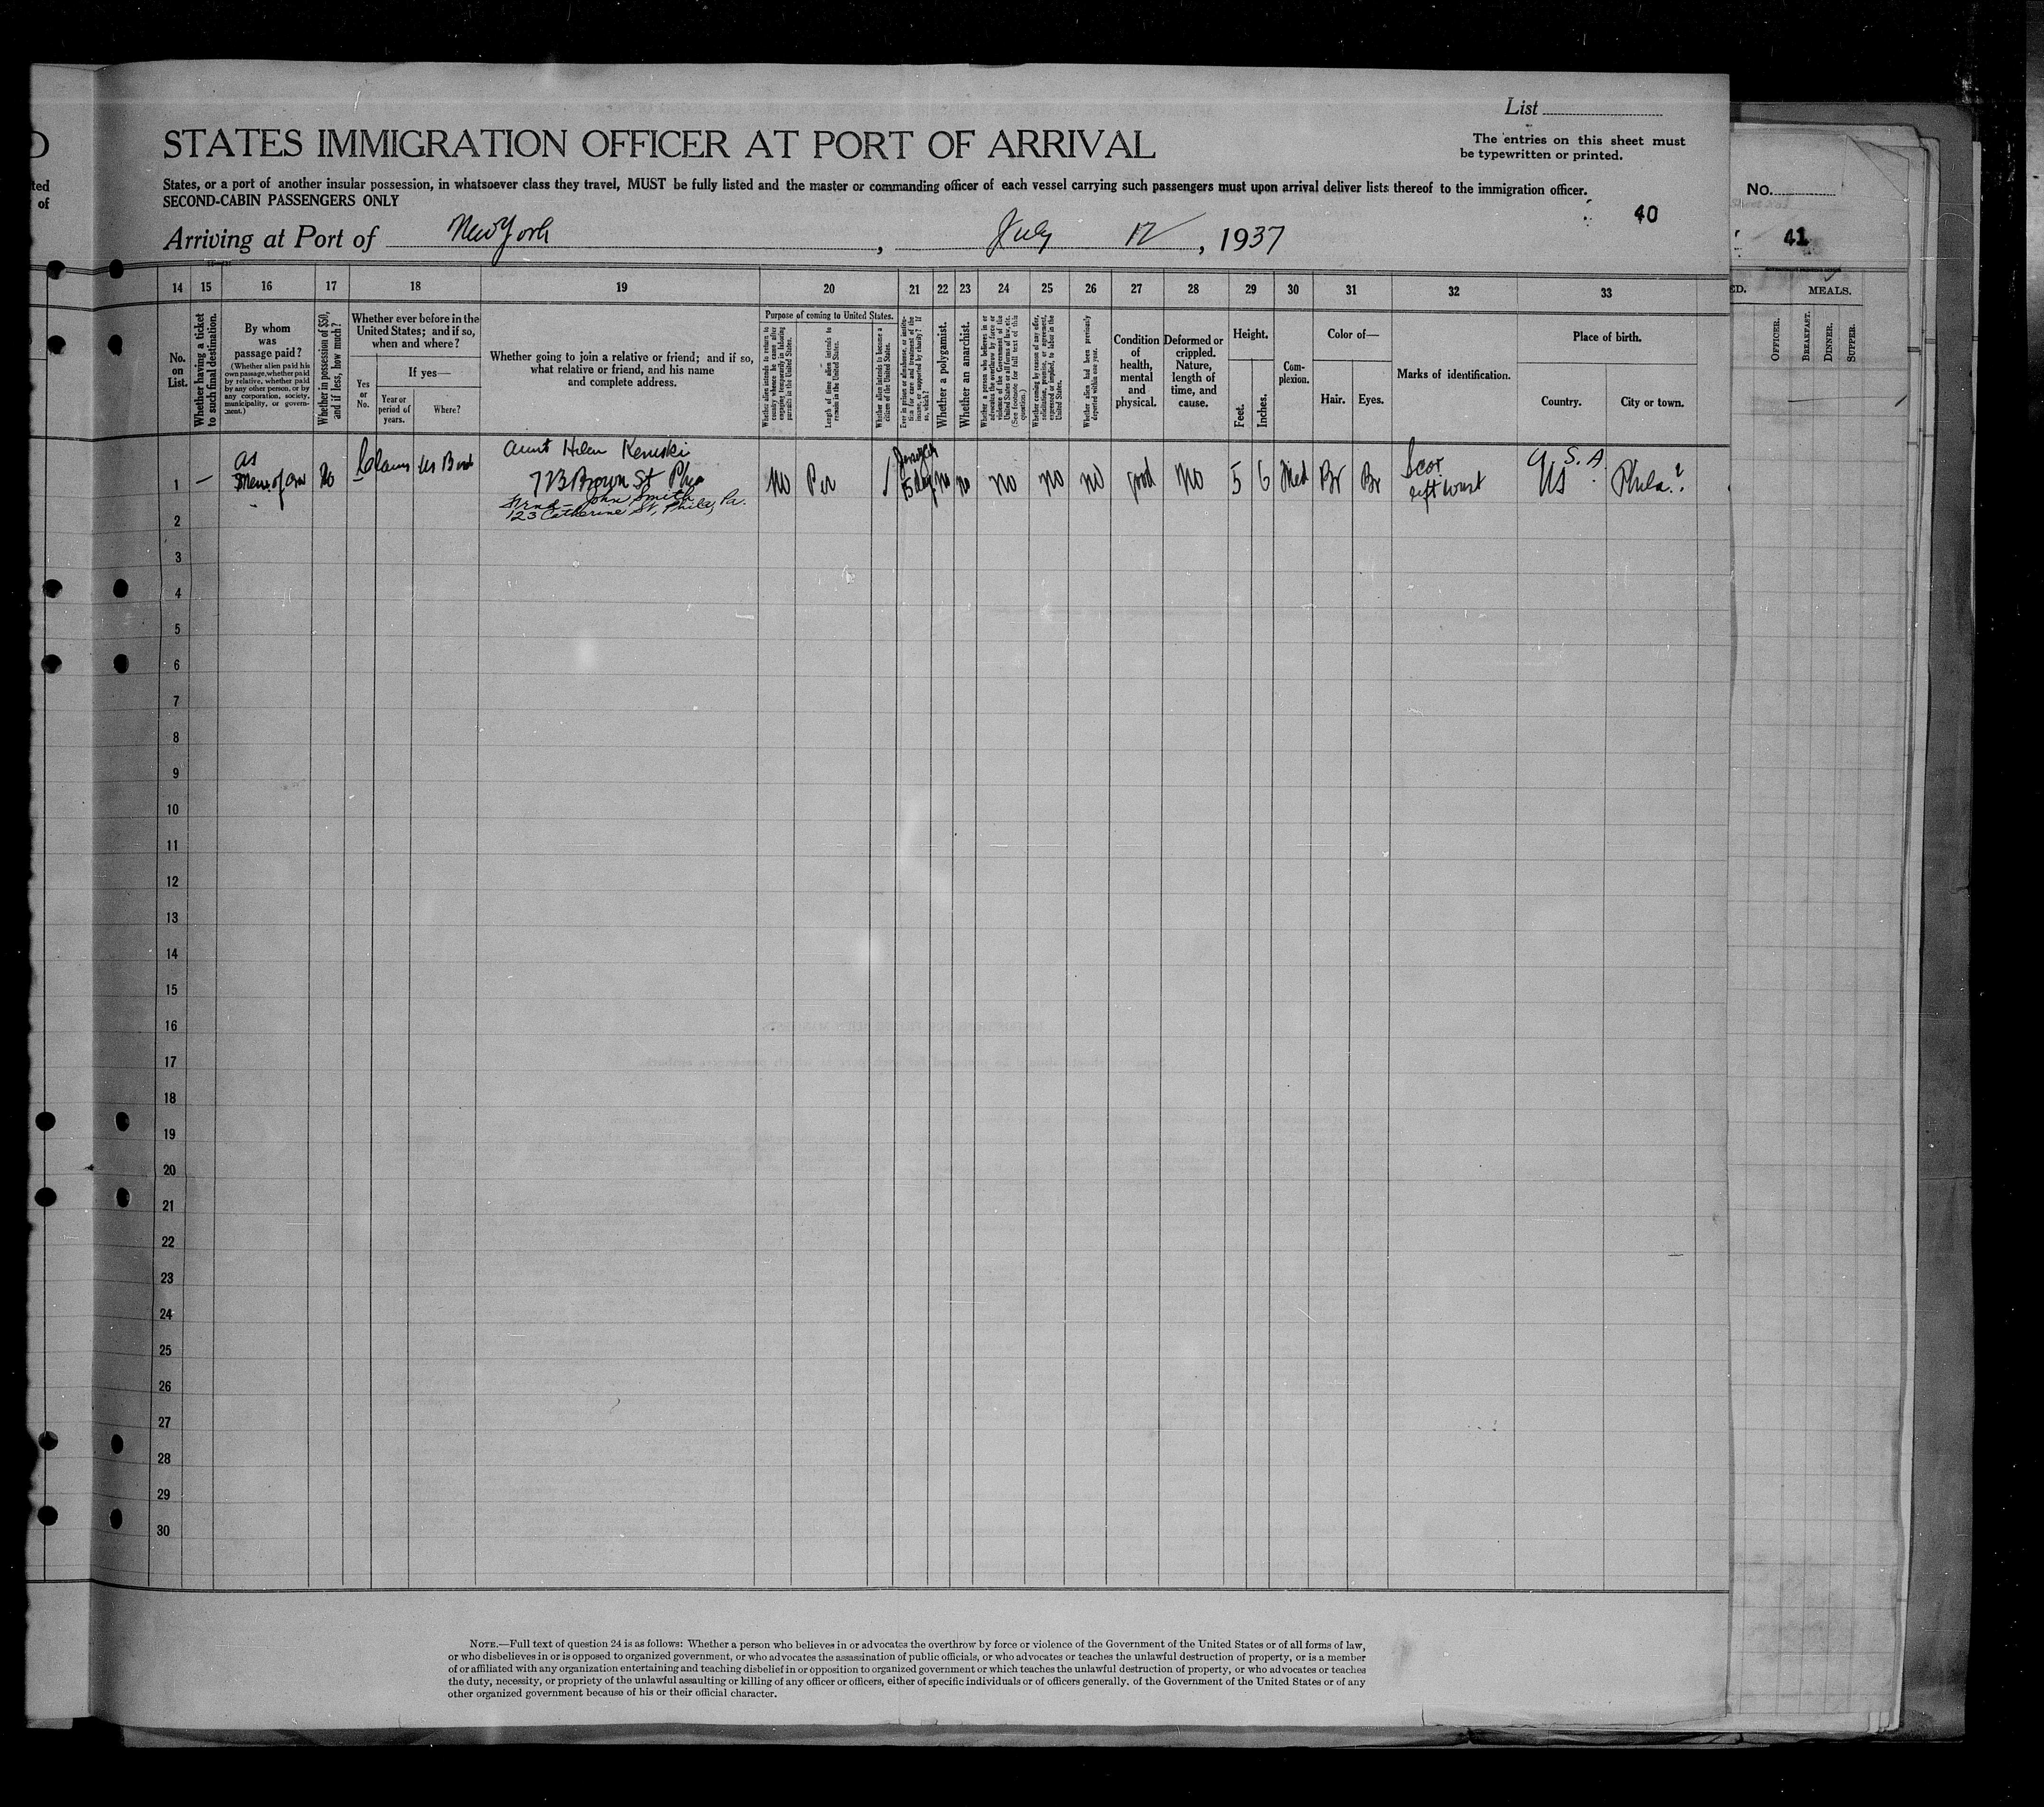 List
STATES IMMIGRATION OFFICER AT PORT OF ARRIVAL
The entries on this sheet must
be typewritten or printed.
States, or a port of another insular possession, in whatsoever class they travel, MUST be fully listed and the master or commanding officer of each vessel carrying such passengers must upon arrival deliver lists thereof to the immigration officer.
SECOND-CABIN PASSENGERS ONLY
40
Arriving at Port of New York, July 12, 1937
14 15 16 17 18 19 20 21 22 23 24 25 26 27 28 29 30 31 32 33
No. on List.
Whether having a ticket to such final destination.
By whom was passage paid?
(Whether alien paid his own passage, whether paid by relative, whether paid by any other person, or by any corporation, society, municipality, or government.)
Whether in possession of $50, and if less, how much?
Whether ever before in the United States; and if so, when and where?
Yes or No.
If yes—
Year or period of years.
Where?
Whether going to join a relative or friend; and if so, what relative or friend, and his name and complete address.
Purpose of coming to United States.
Whether alien intends to return to country whence he came after engaging temporarily in laboring pursuits in the United States.
Length of time alien intends to remain in the United States.
Whether alien intends to become a citizen of the United States.
Ever in prison or almshouse, or institution for care and treatment of the insane, or supported by charity? If so, which?
Whether a polygamist.
Whether an anarchist.
Whether a person who believes in or advocates the overthrow by force or violence of the Government of the United States or all forms of law, etc. (See footnote for full text of this question.)
Whether coming by reason of any offer, solicitation, promise, or agreement, expressed or implied, to labor in the United States.
Whether alien had been previously deported within one year.
Condition of health, mental and physical.
Deformed or crippled. Nature, length of time, and cause.
Height.
Feet.
Inches.
Complexion.
Color of—
Hair.
Eyes.
Marks of identification.
Place of birth.
Country.
City or town.
Aunt Helen
1 — as No Claims US 7 Brown St Phia No Per 5 days No No No No No good No 5 6 Med Br Br Scar left wrist U.S.A US Phila.?
Frnd - John Smith
123 Catherine St, Phila, Pa.
2
3
4
5
6
7
8
9
10
11
12
13
14
15
16
17
18
19
20
21
22
23
24
25
26
27
28
29
30
NOTE.—Full text of question 24 is as follows: Whether a person who believes in or advocates the overthrow by force or violence of the Government of the United States or of all forms of law,
or who disbelieves in or is opposed to organized government, or who advocates the assassination of public officials, or who advocates or teaches the unlawful destruction of property, or is a member
of or affiliated with any organization entertaining and teaching disbelief in or opposition to organized government or which teaches the unlawful destruction of property, or who advocates or teaches
the duty, necessity, or propriety of the unlawful assaulting or killing of any officer or officers, either of specific individuals or of officers generally, of the Government of the United States or of any
other organized government because of his or their official character.
No.
41
MEALS.
OFFICER.
BREAKFAST.
DINNER.
SUPPER.